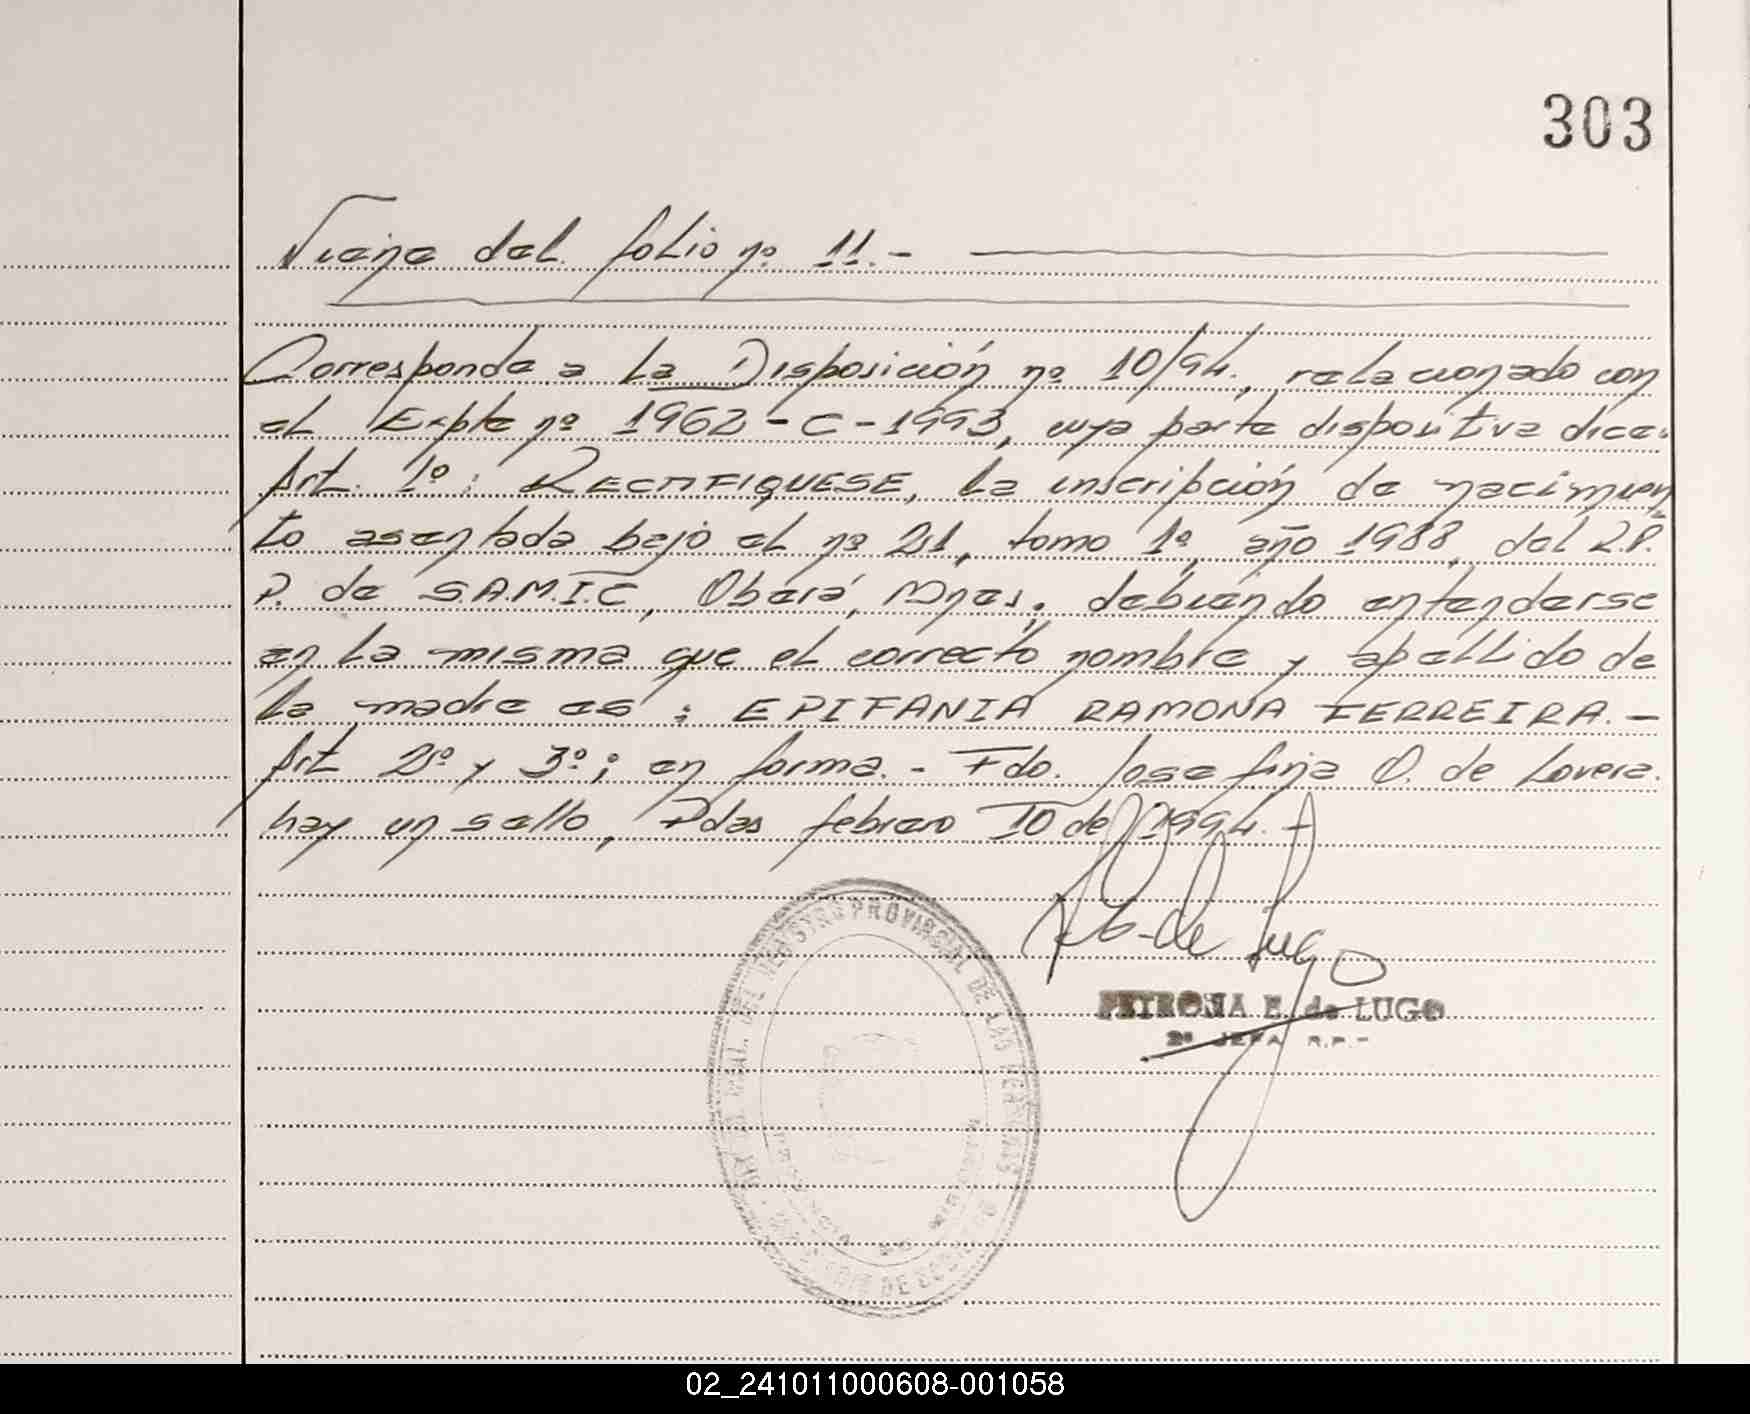 303
Viene del folio nº 11.-
Corresponde a la Disposición nº 10/94., relacionado con
el Expte nº 1962-C-1993, cuya parte dispositiva dice:
Art. 1º: RECTIFIQUESE, la inscripción de nacimien
to asentada bajo el nº 21, tomo 1º, año 1988, del R.P.
P. de S.A.M.I.C, Oberá, Mnes, debiendo entenderse
en la misma que el correcto nombre y apellido de
la madre es: EPIFANIA RAMONA FERREIRA.-
Art 2º y 3º; en forma.- Fdo. Josefina O. de Lovera.
hay un sello, Pdas febrero 10 de 1994.-
de Lugo
PETRONA E. de LUGO
2º JEFA R.P.-
DEL REGISTRO PROVINCIAL DE LAS PERSONAS
DE
02_241011000608-001058